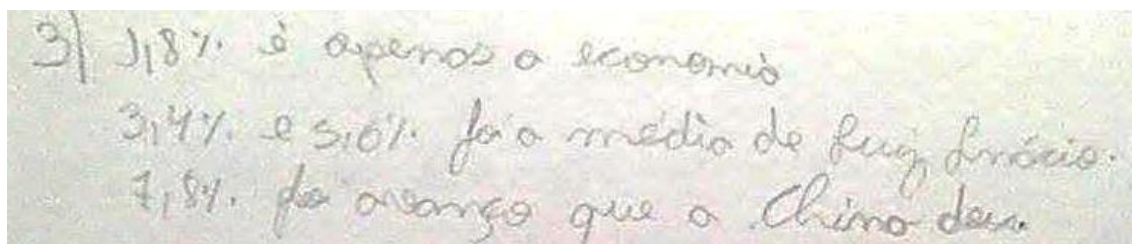 3) 1,8%. é apenas a economia
3,4%. e 5,0%. foi a média de Luiz Inácio.
7,8%. foi avanço que a China deu.